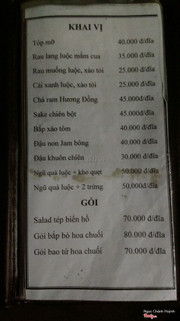 KHAI VỊ
Tóp mỡ 40.000 đ/đĩa
Rau lang luộc mắm cua 35.000 đ/đĩa
Rau muống luộc, xào tỏi 25.000 đ/đĩa
Cải xanh luộc, xào tỏi 25.000 đ/đĩa
Chả ram Hương Đồng 45.000đ/đĩa
Sake chiên bột 45.000đ/đĩa
Bắp xào tôm 40.000 đ/đĩa
Đậu non Jam bông 40.000 đ/đĩa
Đậu khuôn chiên 30.000 đ/đĩa
Ngũ quả luộc + kho quẹt 50.000 đ/đĩa
Ngũ quả luộc + 2 trứng 50.000 đ/đĩa
GỎI
Salad tép biển hồ 70.000 đ/đĩa
Gỏi bắp bò hoa chuối 80.000 đ/đĩa
Gỏi bao tử hoa chuối 70.000 đ/đĩa